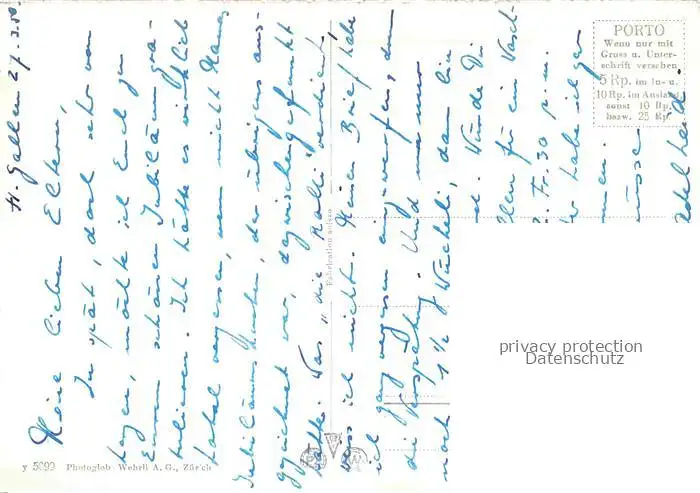 St. Gallen 27.3.50.
Meine lieben Eltern,
Zu spät, doch sehr von
Herzen, möchte ich Euch zu
Eurem schönen Jubiläum gra-
tulieren. Ich hätte es wirklich
total vergessen, wenn nicht Hans
Jubiläumskuchen, der übrigens aus-
gezeichnet war, dazwischengefunkt
hätte. Was "die Kalli" verdient,
weiss ich nicht. Meinen Brief habe
ich ganz vergessen einzuwerfen, dan
die Verspätung. Und nun nur
noch 1 ½ Wücheli, dann bin
Würde Di
für ein Wasch-
Fr. 30 p. m.
habe ich gar
men.
üsse
Adelheid.
PORTO
Wenn nur mit
Gruss u. Unter-
schrift versehen
5 Rp. im In- u.
10 Rp. im Ausland
sonst 10 Rp.
bezw. 25 Rp.
Fabrication suisse
y 5692 Photoglob Wehrli A. G., Zürich
privacy protection
Datenschutz